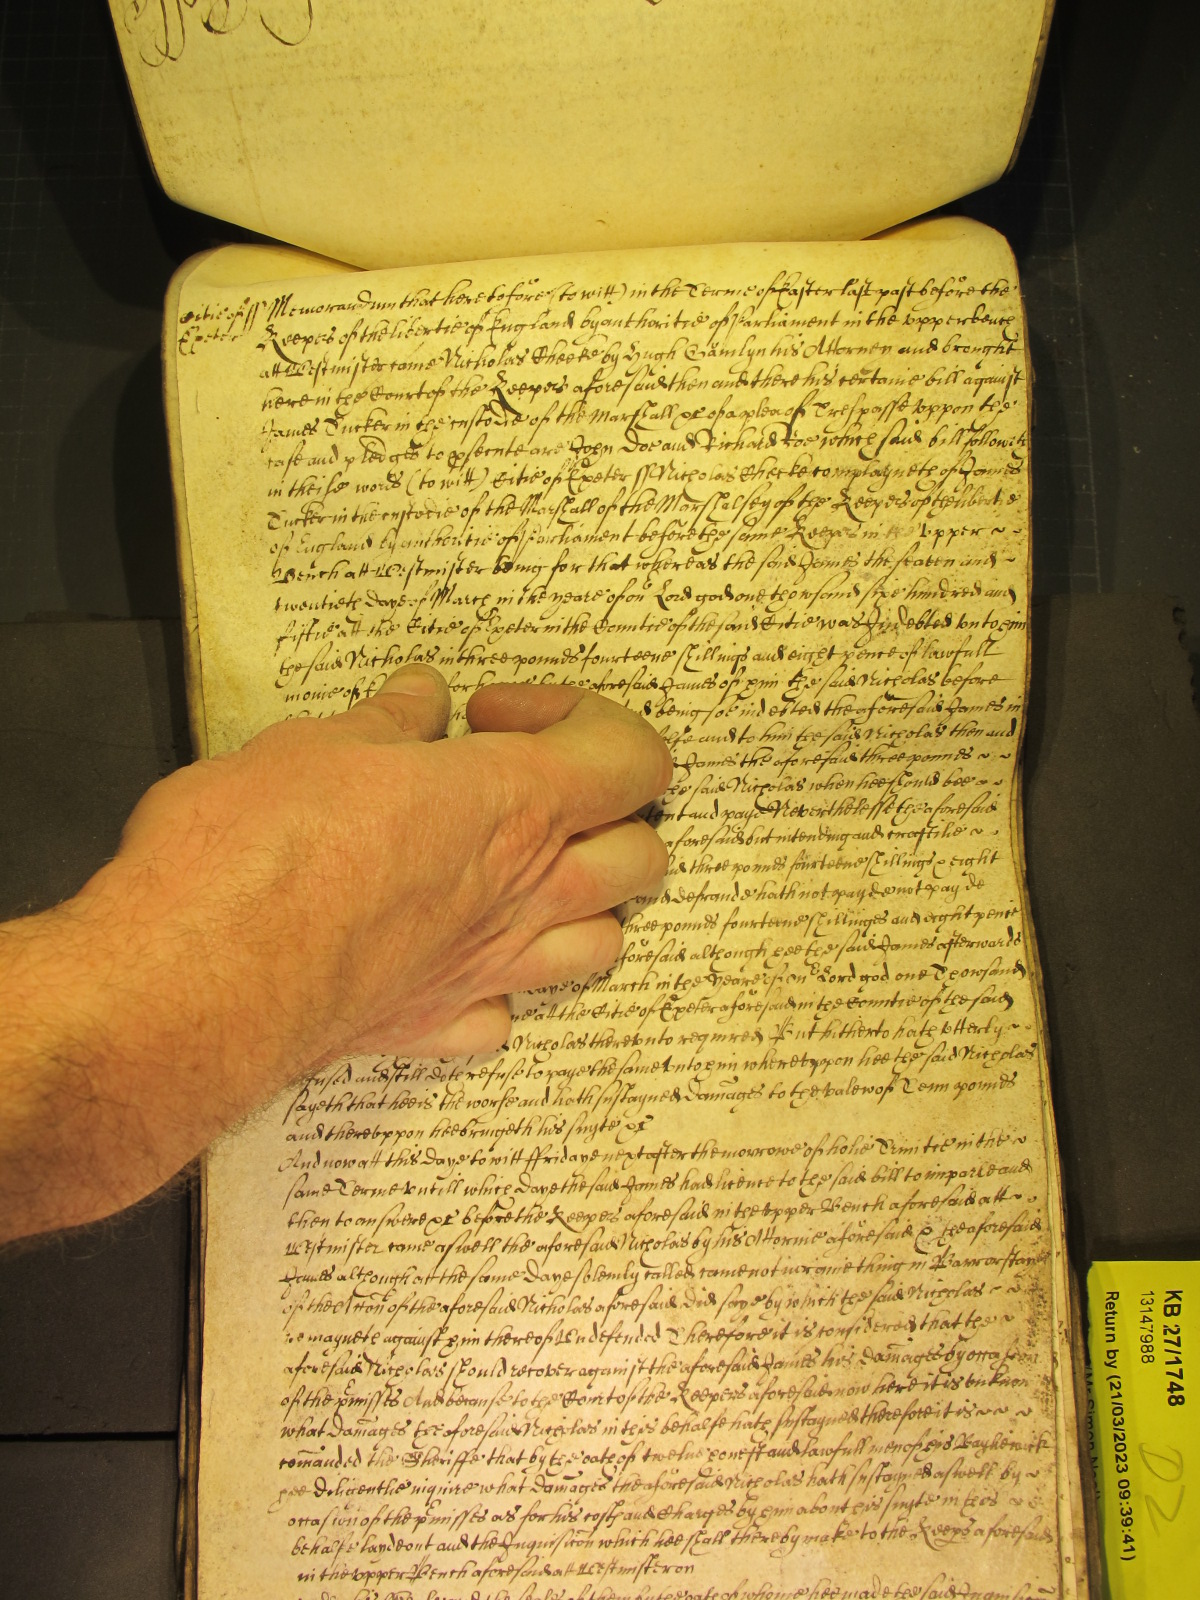 Citie of ss Memorandum that heretofore (to witt) in the Terme of Easter last past before the
Exeter Keepers of the libertie of England by authoritie of Parliament in the upper bench
att Westmister came Nicholas Cheeke by Hugh his Attorney and brought
here in the Court of the Keepers aforesaid then and there his certaine bill against
James Tucker in the custodie of the Marshall &c of a plea of Trespasse uppon the
case and pledges to psecute are John Doe and Richard Roe which said bill followeth
in theise words (to witt) Citie of Exeter ss Nicholas Cheeke complayneth of James
Tucker in the custodie of the Marshall of the Marshalsey of the Keepers of the libertie
of England by authoritie of Parliament before the same Keepers in the upper
Bench att Westmister being for that whereas the said James the seaven and
twentieth daye of March in the yeare of our Lord god one thowsand sixe hundred and
fiftie att the Citie of Exeter in the Countie of the said Citie was Indebted unto him
the said Nicholas in three pounds fourteene shillings and eight pence of lawfull
monie of the aforesaid James of him the said Nicholas before
being soe indebted the aforesaid James in
and to him the said Nicholas then and
James the aforesaid three pounds
the said Nicholas when hee should bee
and paye Neverthelesse the aforesaid
aforesaid but intending and craftilie
three pounds fourteene shillings & eight
and defraude hath not payde not payde
three pounds fourteene shillinges and eight pence
aforesaid although hee the said James afterwards
daye of March in the yeare of our Lord god one Thowsand
att the Citie of Exeter aforesaid in the Countie of the said
Nicholas thereunto required But hitherto hath utterly
refused and still doth refuse to paye the same unto him whereuppon hee the said Nicholas
sayeth that hee is the worse and hath sustayned damages to the valew of Tenn pounds
and thereuppon hee bringeth his suyte &c
And now att this daye to witt ffriday next after the morrowe of holie Trinitie in the
same Terme untill which daye the said James had licence to the said bill to imparle and
then to answere &c before the Keepers aforesaid in the upper Bench aforesaid att
Westmister came aswell the aforesaid Nicholas by his Attornie aforesaid & the aforesaid
James although att the same daye solemly called came not nor anie thing in Barr or staye
of the accon of the aforesaid Nicholas aforesaid did saye by which the said Nicholas
remayneth against him thereof Undefended Therefore it is considered that the
aforesaid Nicholas should recover against the aforesaid James his damages by occasion
of the pmisses And because to the Court of the Keepers aforesaid now here it is unknown
what damages the aforesaid Nicholas in this behalfe hath sustayned therefore it is
comanded the Sheriffe that by the oath of twelve honest and lawfull men of his Bayliewick
hee diligentlie inquire what damages the aforesaid Nicholas hath sustayned aswell by
occasion of the pmisses as for his costs and charges by him about his suyte in this
behalfe layde out and the Inquisicon which hee shall thereby make to the Keepers aforesaid
in the upper Bench aforesaid att Westmister on
KB 27/1748
13147988
Return by (21/03/2023 09:39:41)
D2